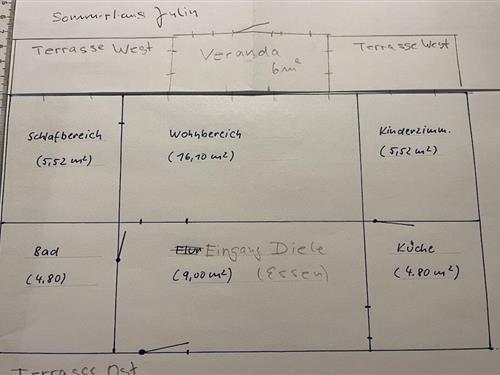 Sommerhaus Julin
Terrasse West
Veranda
6m²
Terrasse West
Schlafbereich
(5,52 m²)
Wohnbereich
(16,10 m²)
Kinderzimm.
(5,52 m²)
Bad
(4.80)
Flur Eingang Diele
(9,00 m²) (Essen)
Küche
(4.80 m²)
Terrasse Ost